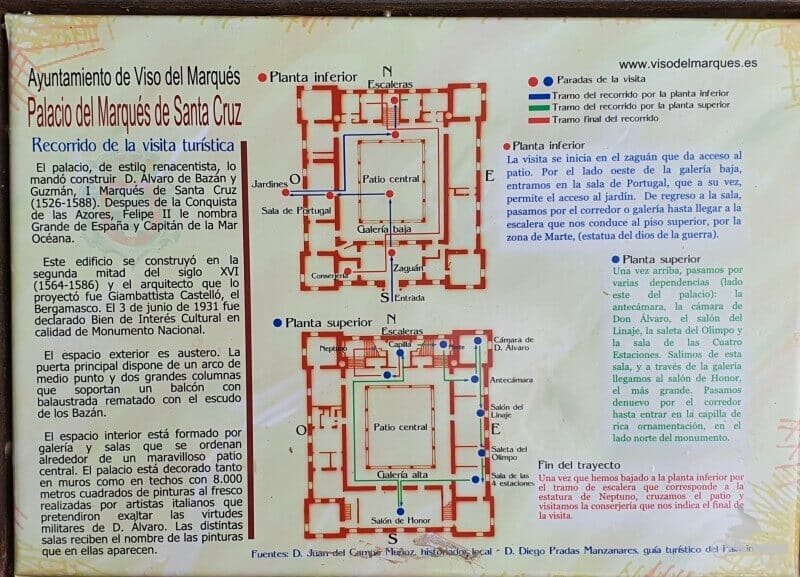 Ayuntamiento de Viso del Marqués
Palacio del Marqués de Santa Cruz
Recorrido de la visita turística
El palacio, de estilo renacentista, lo
mandó construir D. Álvaro de Bazán y
Guzmán, I Marqués de Santa Cruz
(1526-1588). Despues de la Conquista
de las Azores, Felipe II le nombra
Grande de España y Capitán de la Mar
Océana.
Este edificio se construyó en la
segunda mitad del siglo XVI
(1564-1586) y el arquitecto que lo
proyectó fue Giambattista Castelló, el
Bergamasco. El 3 de junio de 1931 fue
declarado Bien de Interés Cultural en
calidad de Monumento Nacional.
El espacio exterior es austero. La
puerta principal dispone de un arco de
medio punto y dos grandes columnas
que soportan un balcón con
balaustrada rematado con el escudo
de los Bazán.
El espacio interior está formado por
galería y salas que se ordenan
alrededor de un maravilloso patio
central. El palacio está decorado tanto
en muros como en techos con 8.000
metros cuadrados de pinturas al fresco
realizadas por artistas italianos que
pretendiron exaltar las virtudes
militares de D. Álvaro. Las distintas
salas reciben el nombre de las pinturas
que en ellas aparecen.
Planta inferior
N
Escaleras
Patio central
O
E
Jardines
Sala de Portugal
Galería baja
Conserjería
Zaguán
S
Entrada
Planta superior
N
Escaleras
Neptuno
Capilla
Marte
Cámara de
D. Álvaro
Antecámara
Salón del
Linaje
O
Patio central
E
Saleta del
Olimpo
Galería alta
Sala de las
4 estaciones
Salón de Honor
S
www.visodelmarques.es
Paradas de la visita
Tramo del recorrido por la planta inferior
Tramo del recorrido por la planta superior
Tramo final del recorrido
Planta inferior
La visita se inicia en el zaguán que da acceso al
patio. Por el lado oeste de la galería baja,
entramos en la sala de Portugal, que a su vez,
permite el acceso al jardín. De regreso a la sala,
pasamos por el corredor o galería hasta llegar a la
escalera que nos conduce al piso superior, por la
zona de Marte, (estatua del dios de la guerra).
Planta superior
Una vez arriba, pasamos por
varias dependencias (lado
este del palacio): la
antecámara, la cámara de
Don Álvaro, el salón del
Linaje, la saleta del Olimpo y
la sala de las Cuatro
Estaciones. Salimos de esta
sala, y a través de la galería
llegamos al salón de Honor,
el más grande. Pasamos
denuevo por el corredor
hasta entrar en la capilla de
rica ornamentación, en el
lado norte del monumento.
Fin del trayecto
Una vez que hemos bajado a la planta inferior por
el tramo de escalera que corresponde a la
estatura de Neptuno, cruzamos el patio y
visitamos la conserjería que nos indica el final de
la visita.
Fuentes: D. Juan del Campo Muñoz, historiador local - D. Diego Pradas Manzanares, guía turístico del